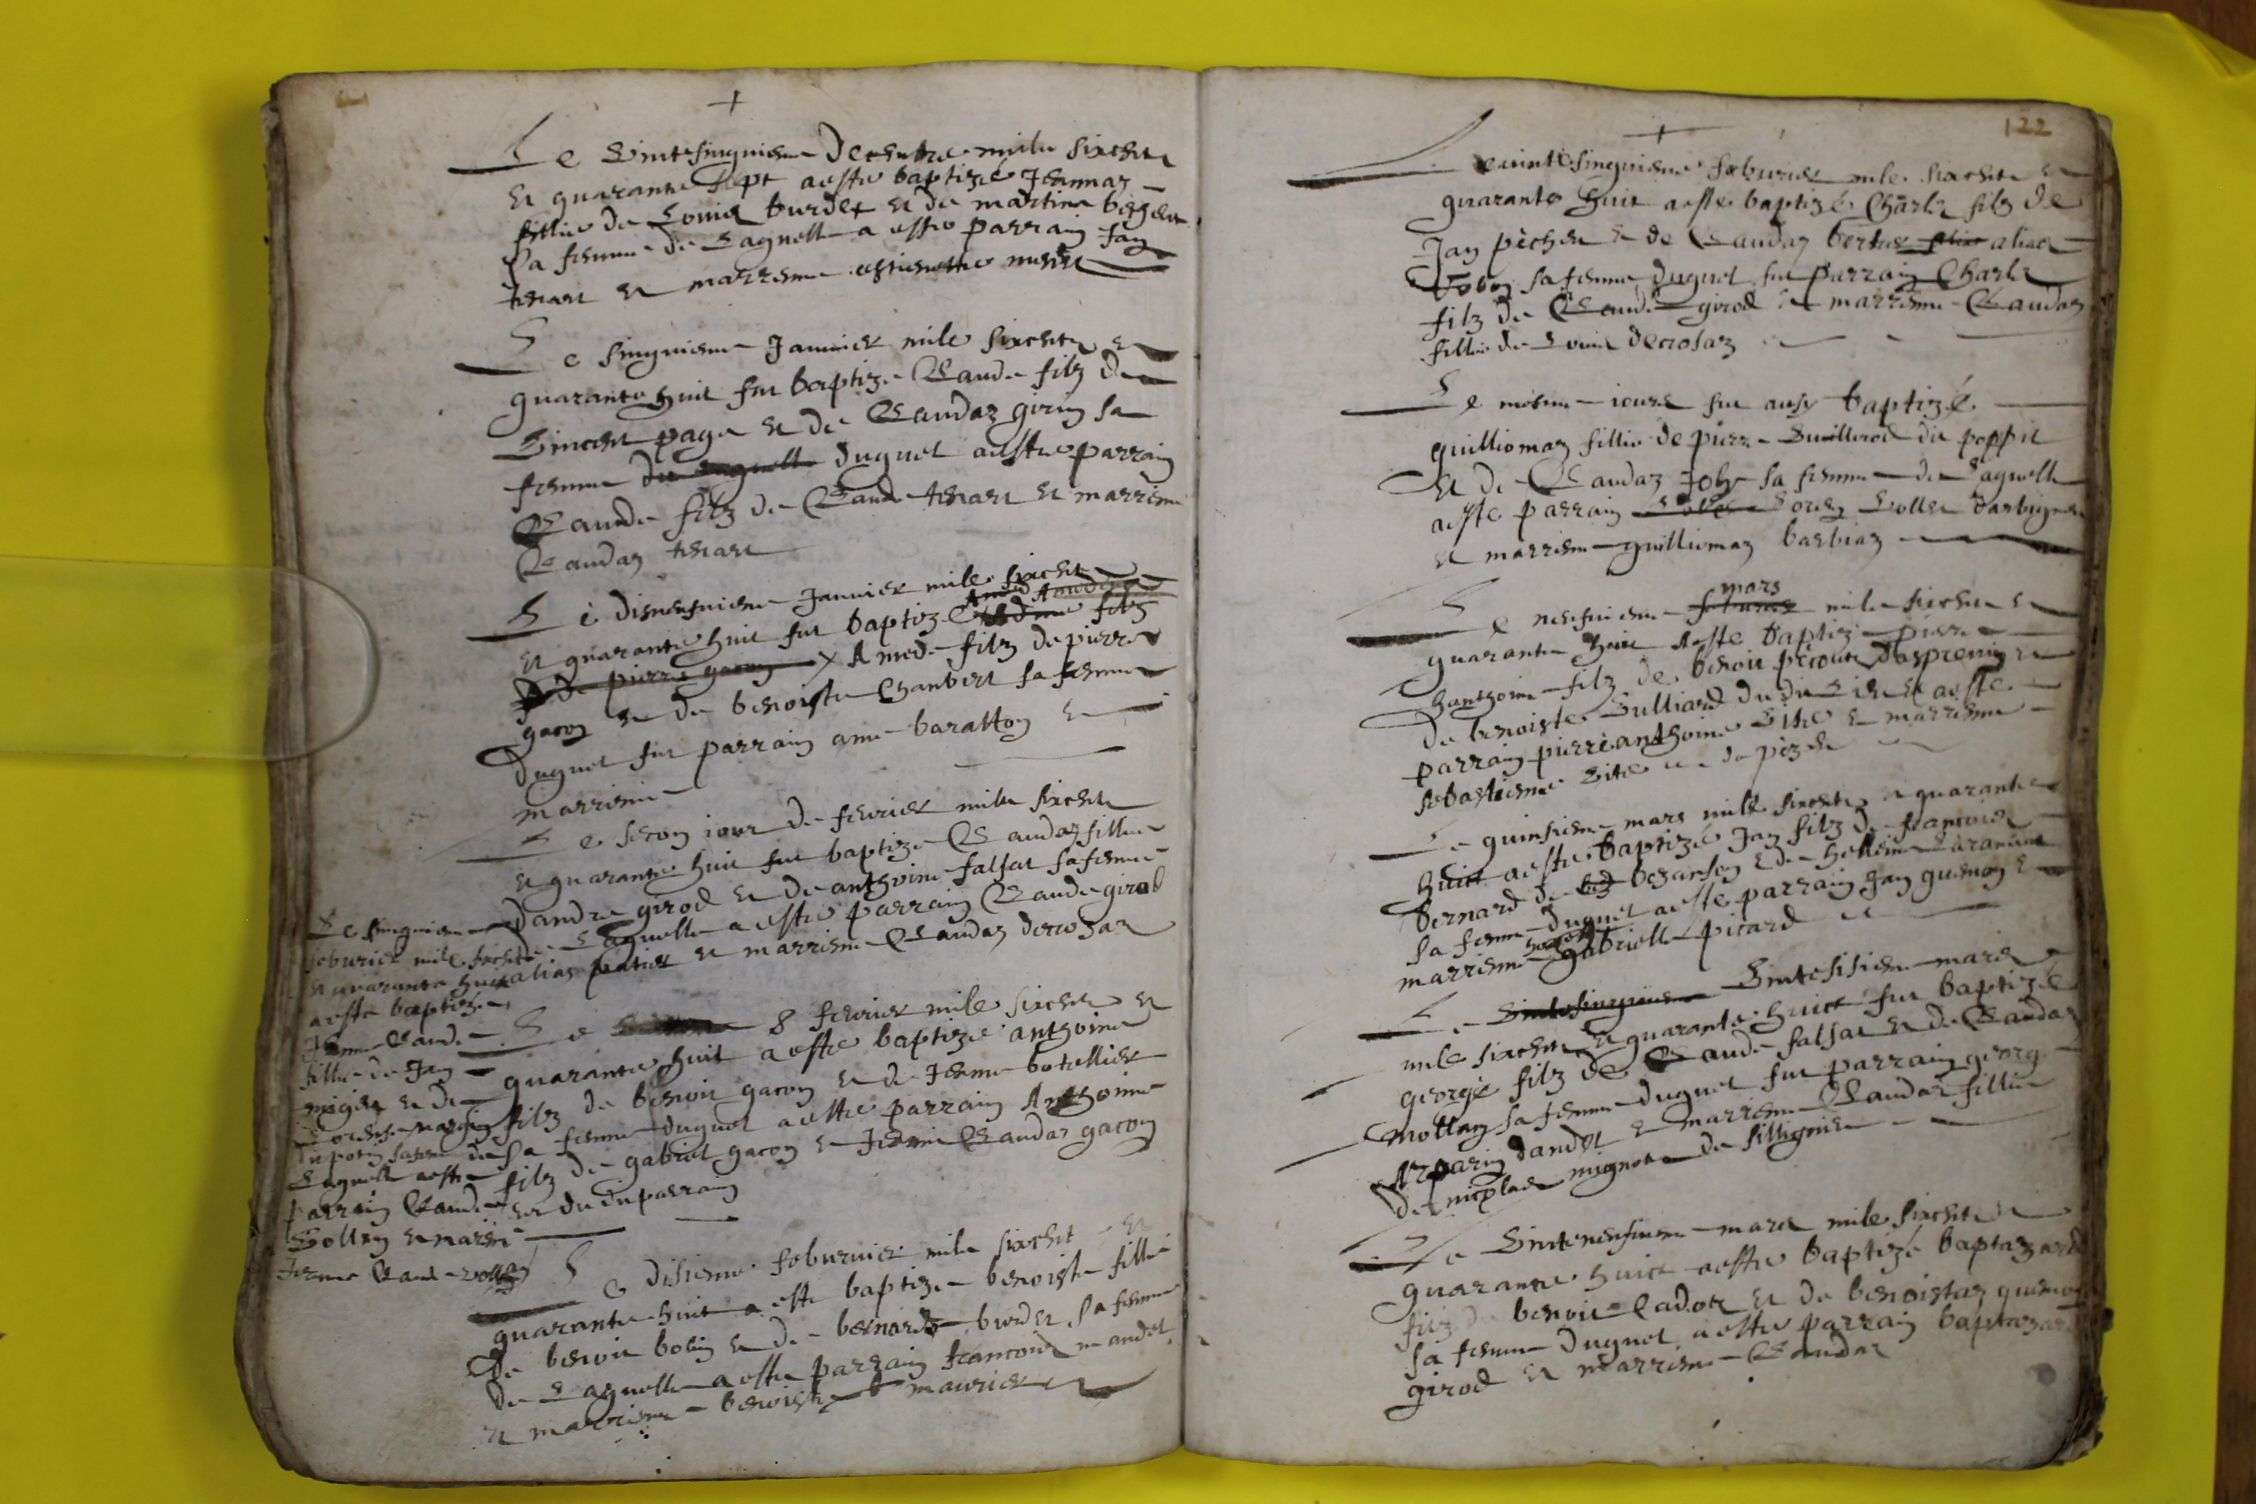 Le vintesinquiesme decembre mille sixcent
et quarante sept a este baptizé Jeannaz
fillie de Louis burdet et de martina
sa femme de Laguelle a esté parrain Jan
tenart et marrenne estiennette
Le sinquiesme Janvier mile sixcent et
quarante huit fut baptize Claude filz de
Vincent page et de Claudaz girin sa
femme de Laguelle duguet a esté parrain
Claude filz de Claude tenart et marrenne
Claudaz tenart
Le disneufviesme Janvier mile sixcent
et quarante huit fut baptize filz
de pierre gacon x Amede filz de pierre
gacon et de benoiste Chanbert sa femme
duguet fut parrain ame baratton et
marrenne
Le secon iour de fevrier mille sixcent
et quarante huit fut baptize Claudaz fillie
dandre girod et de anthoine falsat sa femme
de Laguelle a este parrain Claude girod
alias pratier et marrenne Claudaz decrosaz
Le sinquiesme
feburier mile sixcent
et quarante huit
a este baptizée
Jeanne Claude
fillie de Jan
miget et de
sa femme de
Laguelle a este
parrain Claude
Vollen et marrenne
Jeanne Claude
Le 8 fevrier mile sixcent et
quarante huit a este baptizé anthoine
filz de benoit gacon et de Jeanne botellier
sa femme duguet a este parrain Anthoine
filz de gabriel gacon et Jeanne Claudaz gacon
seur dudit parrain
Le disiesme feburvier mile sixcent et
quarante huit a este baptize benoiste fillie
de benoit bobin et de bernarde burdet sa femme
de Laguelle a este parrain francois mandet
et marrenne benoiste maurier
122
Le vintesinquiesme feburier mile sixcent et
quarante huit a este baptizé Charle filz de
Jan pecheu et de Claudaz bertier filie alias
Vobon sa femme duguet fut parrain Charle
filz de Claude girod et marrenne Claudaz
fillie de Louis decrosaz
Le mesme iour fut ausy baptizé
guilliomaz fillie de pierre Vuillerod dit poppit
et de Claudaz Joly sa femme de Laguelle
a este parrain Loren Vollet darbignieu
et marrenne guilliomaz barbiaz
Le neufviesme mars mile sixcent et
quarante huit a este baptize pierre
hanthoine filz de benoit pecoute daspremy et
de benoiste Vulliard dudit lieu et a este
parrain pierre anthoine Vite et marrenne
sebastienne Vite
Le quinsiesme mars mille sixcent et quarante
huict a este baptizé Jan filz de francois
bernard de besanson et de hellene
sa femme duguet a este parrain Jan guenon et
marrenne gabrielle picard
Le vintesinquiesme Vintesisiesme mars
mile sixcent et quarante huict fut baptizé
george filz de Claude falsat et de Claudaz
mottan sa femme duguet fut parrain george
dandel et marrenne Claudaz fillie
de nicplas mignot de sillignieu
Le Vinteneufviesme mars mile sixcent et
quarante huict a este baptizé baptazard
filz de benoit Cador et de benoistaz guenon
sa femme duguet a este parrain baptazard
girod et marrenne Claudaz